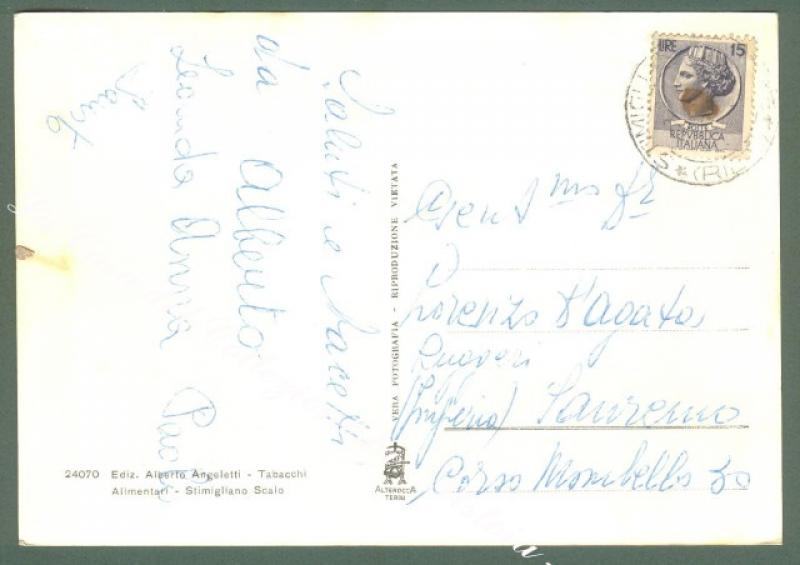 Saluti e Bacetti
da Alberto
Leanda Anna Paola
24070 Ediz. Alberto Angeletti - Tabacchi
Alimentari - Stimigliano Scalo
VERA FOTOGRAFIA - RIPRODUZIONE VIETATA
ALTEROCCA
TERNI
LIRE 15
POSTE
REPVBBLICA
ITALIANA
STIMIGLI
(RI
Gent mo
Lorenzo D'Agata
(Imperia) Sanremo
Corso Mombello 30